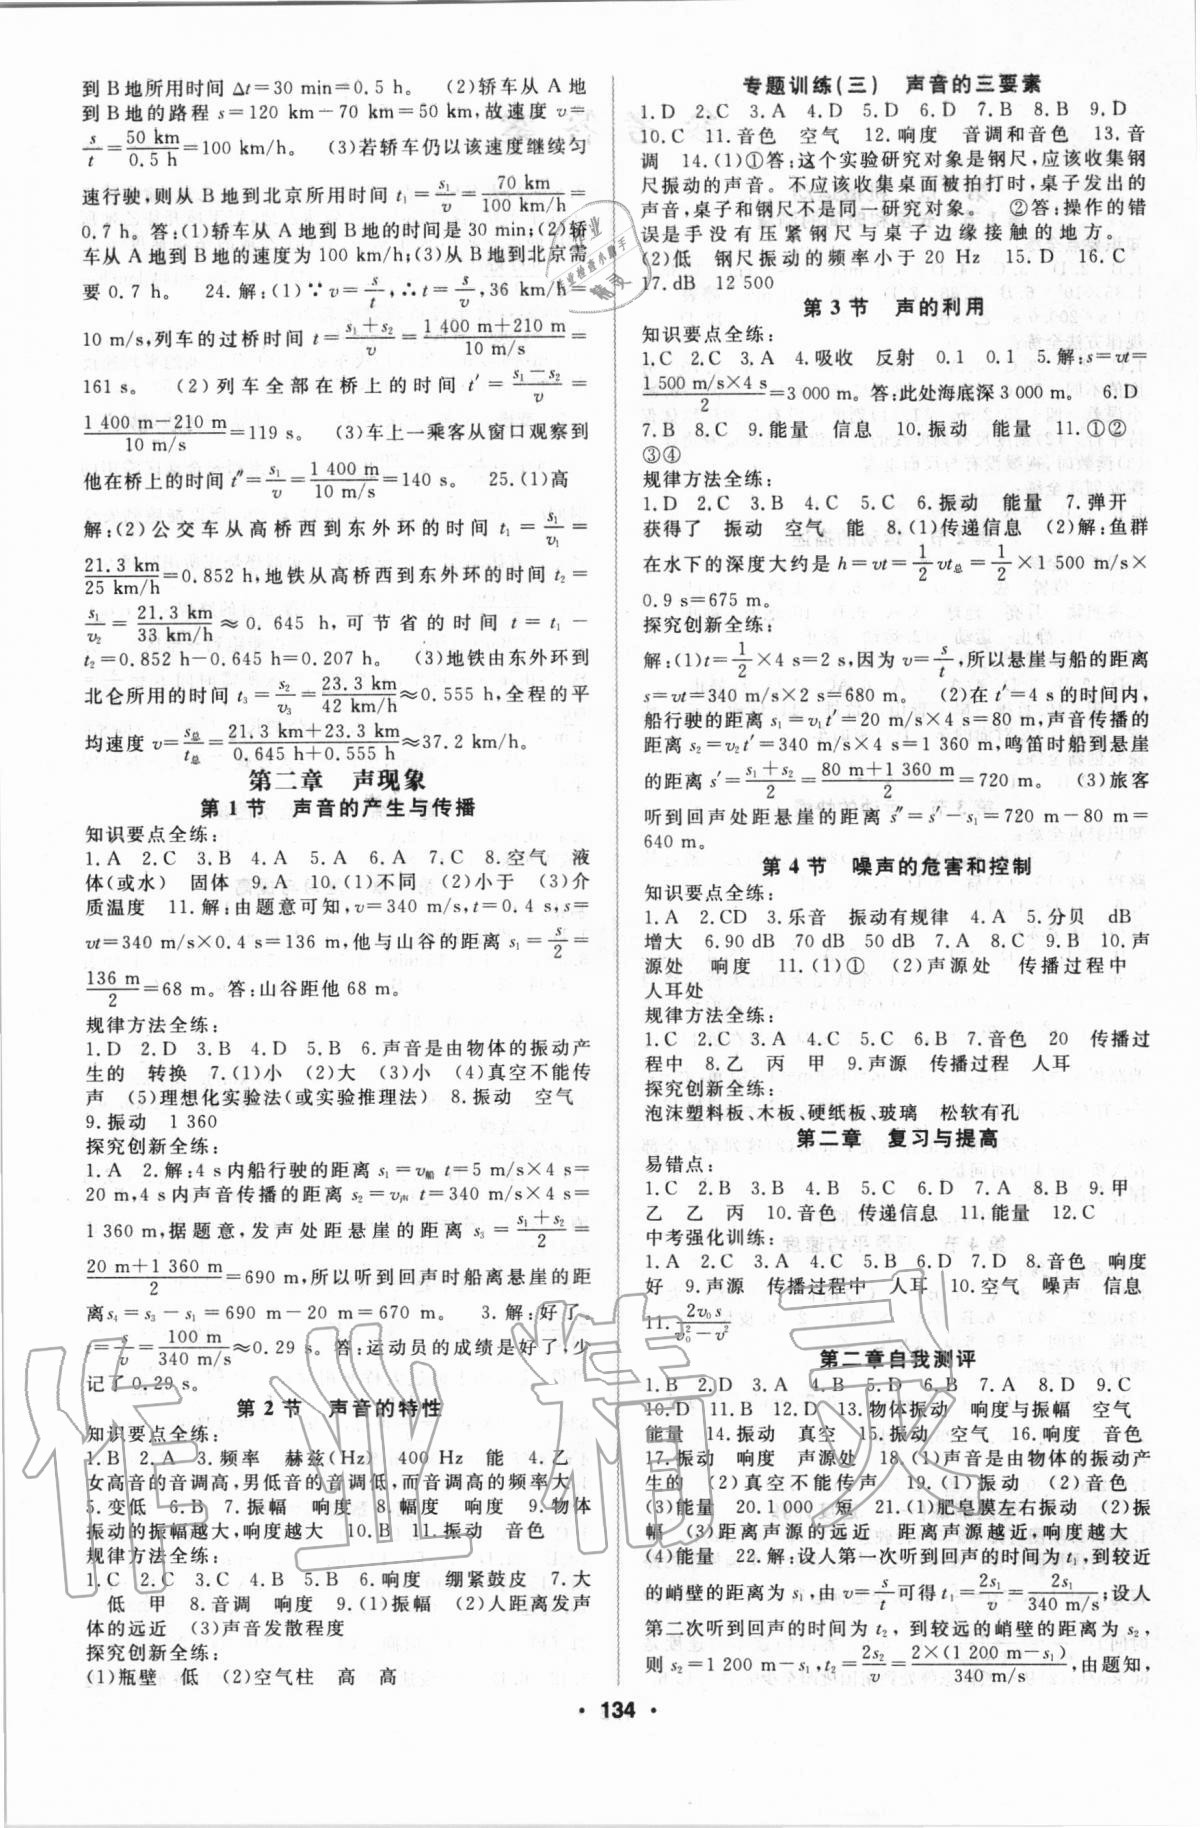 到B地所用时间 Δt=30 min=0.5 h。 (2)轿车从A地
到B地的路程 s=120 km-70 km=50 km,故速度 v=
s/t=50 km/0.5 h=100 km/h。 (3)若轿车仍以该速度继续匀
速行驶,则从B地到北京所用时间 t₁=s₁/v=70 km/100 km/h=
0.7 h。答:(1)轿车从A地到B地的时间是30 min;(2)轿
车从A地到B地的速度为100 km/h;(3)从B地到北京需
要0.7 h。 24.解:(1)∵v=s/t,∴t=s/v,36 km/h=
10 m/s,列车的过桥时间 t=(s₁+s₂)/v=(1 400 m+210 m)/10 m/s=
161 s。 (2)列车全部在桥上的时间 t′=(s₁-s₂)/v=
(1 400 m-210 m)/10 m/s=119 s。 (3)车上一乘客从窗口观察到
他在桥上的时间 t″=s₁/v=1 400 m/10 m/s=140 s。 25.(1)高
解:(2)公交车从高桥西到东外环的时间 t₁=s₁/v₁=
21.3 km/25 km/h=0.852 h,地铁从高桥西到东外环的时间 t₂=
s₁/v₂=21.3 km/33 km/h≈0.645 h,可节省的时间 t=t₁-
t₂=0.852 h-0.645 h=0.207 h。 (3)地铁由东外环到
北仑所用的时间 t₃=s₂/v₃=23.3 km/42 km/h≈0.555 h,全程的平
均速度 v=s总/t总=(21.3 km+23.3 km)/(0.645 h+0.555 h)≈37.2 km/h。
第二章 声现象
第1节 声音的产生与传播
知识要点全练:
1.A 2.C 3.B 4.A 5.A 6.A 7.C 8.空气 液
体(或水) 固体 9.A 10.(1)不同 (2)小于 (3)介
质温度 11.解:由题意可知,v=340 m/s,t=0.4 s,s=
vt=340 m/s×0.4 s=136 m,他与山谷的距离 s₁=s/2=
136 m/2=68 m。答:山谷距他68 m。
规律方法全练:
1.D 2.D 3.B 4.B 5.B 6.声音是由物体的振动产
生的 转换 7.(1)小 (2)大 (3)小 (4)真空不能传
声 (5)理想化实验法(或实验推理法) 8.振动 空气
9.振动 1 360
探究创新全练:
1.A 2.解:4 s内船行驶的距离 s₁=v船 t=5 m/s×4 s=
20 m,4 s内声音传播的距离 s₂=v声 t=340 m/s×4 s=
1 360 m,据题意,发声处距悬崖的距离 s₃=(s₁+s₂)/2=
(20 m+1 360 m)/2=690 m,所以听到回声时船离悬崖的距
离s₄=s₃-s₁=690 m-20 m=670 m。 3.解:好了。
t=s/v=100 m/340 m/s≈0.29 s。答:运动员的成绩是好了,少
记了0.29 s。
第2节 声音的特性
知识要点全练:
1.B 2.A 3.频率 赫兹(Hz) 400 Hz 能 4.乙
女高音的音调高,男低音的音调低,而音调高的频率大
5.变低 6.B 7.振幅 响度 8.幅度 响度 9.物体
振动的振幅越大,响度越大 10.B 11.振动 音色
规律方法全练:
1.C 2.C 3.C 4.B 5.B 6.响度 绷紧鼓皮 7.大
低 甲 8.音调 响度 9.(1)振幅 (2)人距离发声
体的远近 (3)声音发散程度
探究创新全练:
(1)瓶壁 低 (2)空气柱 高 高
专题训练(三) 声音的三要素
1.D 2.C 3.A 4.D 5.D 6.D 7.B 8.B 9.D
10.C 11.音色 空气 12.响度 音调和音色 13.音
调 14.(1)①答:这个实验研究对象是钢尺,应该收集钢
尺振动的声音。不应该收集桌面被拍打时,桌子发出的
声音,桌子和钢尺不是同一研究对象。 ②答:操作的错
误是手没有压紧钢尺与桌子边缘接触的地方。
(2)低 钢尺振动的频率小于20 Hz 15.D 16.C
17.dB 12 500
第3节 声的利用
知识要点全练:
1.C 2.C 3.A 4.吸收 反射 0.1 0.1 5.解:s=vt=
1 500 m/s×4 s/2=3 000 m。答:此处海底深3 000 m。 6.D
7.B 8.C 9.能量 信息 10.振动 能量 11.①②
③④
规律方法全练:
1.D 2.C 3.B 4.C 5.C 6.振动 能量 7.弹开
获得了 振动 空气 能 8.(1)传递信息 (2)解:鱼群
在水下的深度大约是 h=vt=1/2 vt总=1/2×1 500 m/s×
0.9 s=675 m。
探究创新全练:
解:(1)t=1/2×4 s=2 s,因为 v=s/t,所以悬崖与船的距离
s=vt=340 m/s×2 s=680 m。 (2)在 t′=4 s的时间内,
船行驶的距离 s₁=v₁t′=20 m/s×4 s=80 m,声音传播的
距离 s₂=v₂t′=340 m/s×4 s=1 360 m,鸣笛时船到悬崖
的距离 s′=(s₁+s₂)/2=(80 m+1 360 m)/2=720 m。 (3)旅客
听到回声处距悬崖的距离 s″=s′-s₁=720 m-80 m=
640 m。
第4节 噪声的危害和控制
知识要点全练:
1.A 2.CD 3.乐音 振动有规律 4.A 5.分贝 dB
增大 6.90 dB 70 dB 50 dB 7.A 8.C 9.B 10.声
源处 响度 11.(1)① (2)声源处 传播过程中
人耳处
规律方法全练:
1.C 2.C 3.A 4.C 5.C 6.B 7.音色 20 传播过
程中 8.乙 丙 甲 9.声源 传播过程 人耳
探究创新全练:
泡沫塑料板、木板、硬纸板、玻璃 松软有孔
第二章 复习与提高
易错点:
1.C 2.B 3.B 4.C 5.D 6.C 7.A 8.B 9.甲
乙 乙 丙 10.音色 传递信息 11.能量 12.C
中考强化训练:
1.A 2.C 3.D 4.C 5.B 6.D 7.D 8.音色 响度
好 9.声源 传播过程中 人耳 10.空气 噪声 信息
11.2v₀s/(v₀²-v²)
第二章自我测评
1.B 2.B 3.A 4.B 5.D 6.B 7.D 8.D 9.C
10.D 11.B 12.D 13.物体振动 响度与振幅 空气
能量 14.振动 真空 15.振动 空气 16.响度 音色
17.振动 响度 声源处 18.(1)声音是由物体的振动产
生的 (2)真空不能传声 19.(1)振动 (2)音色
(3)能量 20.1 000 短 21.(1)肥皂膜左右振动 (2)振
幅 (3)距离声源的远近 距离声源越近,响度越大
(4)能量 22.解:设人第一次听到回声的时间为 t₁,到较近
的峭壁的距离为 s₁,由 v=s/t可得 t₁=2s₁/v=2s₁/340 m/s;设人
第二次听到回声的时间为 t₂,到较远的峭壁的距离为 s₂,
则 s₂=1 200 m-s₁,t₂=2s₂/v=2×(1 200 m-s₁)/340 m/s,由题知,
· 134 ·
作业精灵